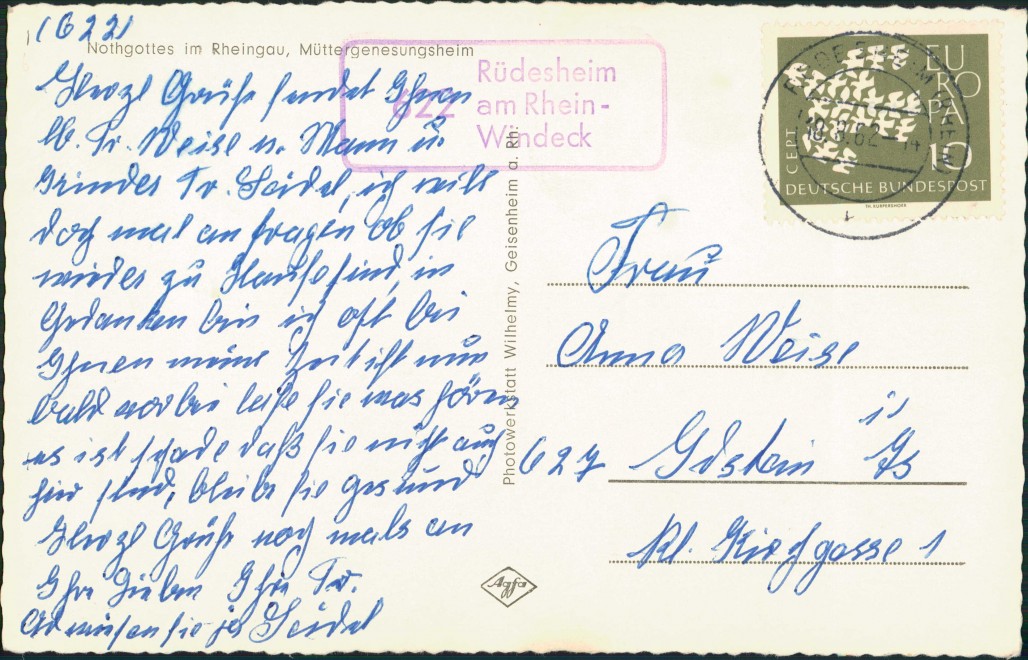 (6221
Nothgottes im Rheingau, Müttergenesungsheim
Herzl Grüße sendet Ihnen
lb. Fr. Weise u. Mann u.
Kinder Fr. Seidel, ich will
doch mal anfragen ob sie
wieder zu Hause sind, in
Gedanken bin ich oft bei
Ihnen meine Zeit ist nun
bald vorbei laße sie was hören
es ist schade daß sie nicht auch
hier sind, bleibe sie gesund
Herzl Grüße noch mals an
Ihre Lieben Ihre Fr.
Seidel
Photowerkstatt Wilhelmy, Geisenheim a. Rh.
Agfa
622
Rüdesheim
am Rhein-
Windeck
EU
RO
PA
10
CEPT
DEUTSCHE BUNDESPOST
Frau
Anna Weise
627 Idstein i/Ts
Kl. Kirchgasse 1